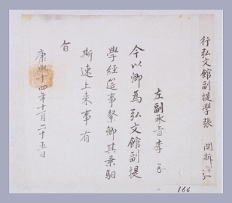 行弘文館副提學張 開拆
左副承旨李
今以卿爲弘文館副提
學經筵事緊卿其乘馹
斯速上來事有
旨
康熙十四年十一月二十五日
166